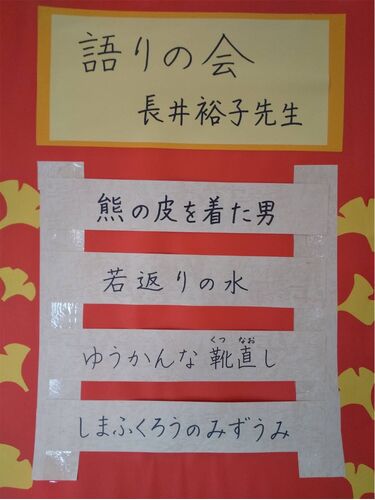 語りの会
長井裕子先生
熊の皮を着た男
若返りの水
くつ なお
ゆうかんな 靴直し
しまふくろうのみずうみ